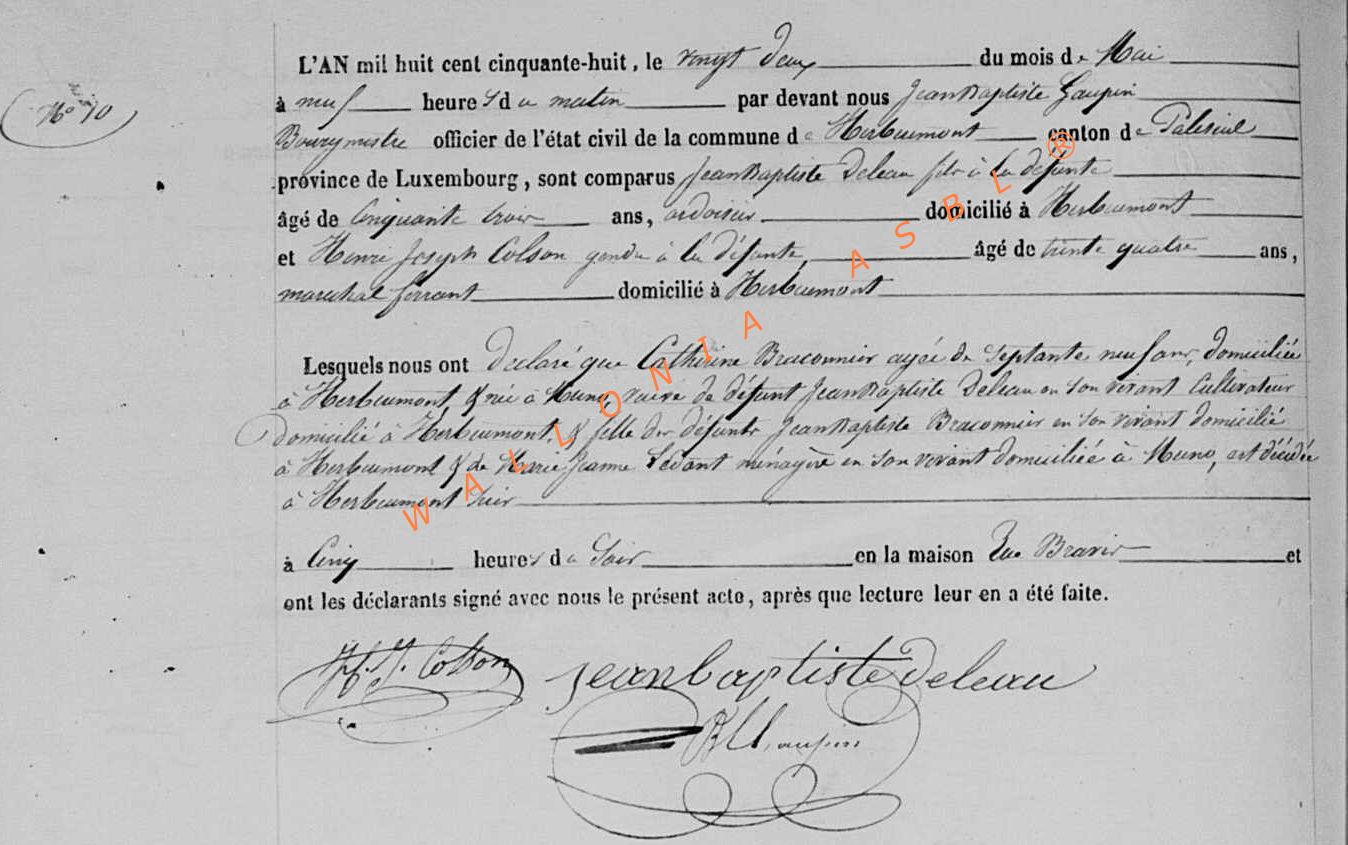 L'AN mil huit cent cinquante-huit, le vingt deux du mois de Mai
No 10
à neuf heures du matin par devant nous Jean Baptiste
Bourgmestre officier de l'état civil de la commune de Herbeumont canton de Paliseul
province de Luxembourg, sont comparus Jean Baptiste Deleau fils à la défunte
âgé de Cinquante trois ans, ardoisier domicilié à Herbeumont
et Henri Joseph Colson gendre à la défunte, âgé de trente quatre ans,
marechal ferrant domicilié à Herbeumont
Lesquels nous ont declaré que Catherine Braconnier agée de Septante neuf ans, domiciliée
à Herbeumont & née à Muno, veuve de défunt Jean Baptiste Deleau en son vivant Cultivateur
domicilié à Herbeumont, & fille des défunts Jean Baptiste Braconnier en son vivant domicilié
à Herbeumont & de Marie Jeanne ménagère en son vivant domiciliée à Muno, est décédée
à Herbeumont hier
à Cinq heures du Soir en la maison Rue et
ont les déclarants signé avec nous le présent acte, après que lecture leur en a été faite.
H. J. Colson Jean baptiste Deleau
WALLONIA ASBL ®